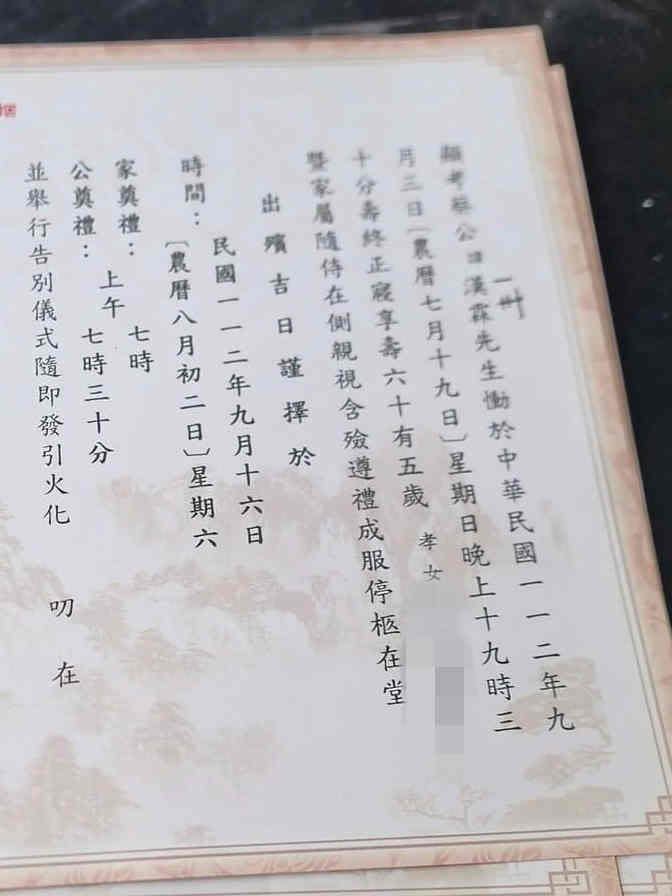 顯考蔡公漢霖先生慟於中華民國一一二年九
月三日〔農曆七月十九日〕星期日晚上十九時三
十分壽終正寢享壽六十有五歲 孝女
暨家屬隨侍在側親視含殮遵禮成服停柩在堂
出殯吉日謹擇於
時間：民國一一二年九月十六日
〔農曆八月初二日〕星期六
家奠禮：上午 七時
公奠禮：七時三十分
並舉行告別儀式隨即發引火化 叨在